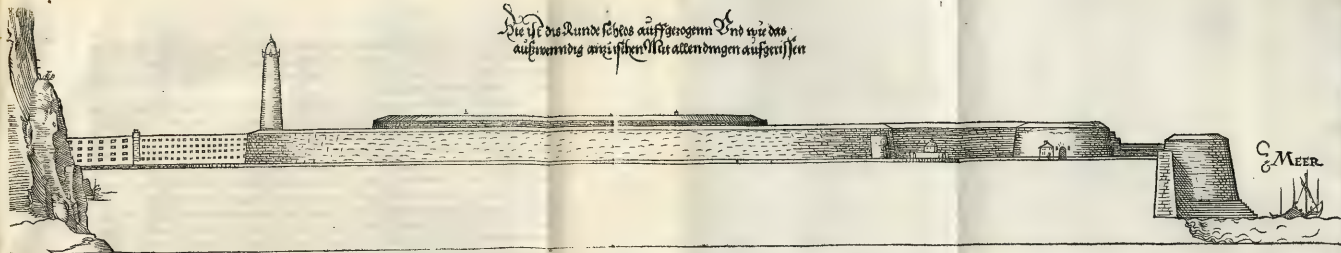 Hie ist das Runde schlos auffgezogenn Vnd wie das
außwenndig anzusehen Mit allen dingen aufgerissen
MEER